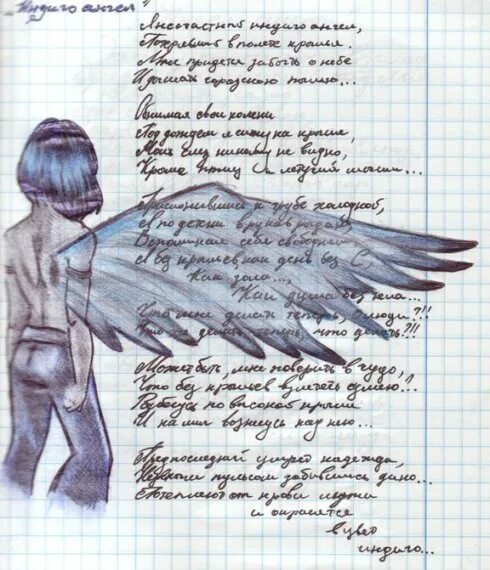 "Индиго ангел"
Я несчастный индиго ангел,
Потерявший в полете крылья.
Мне придется забыть о небе
И дышать городскою пылью...
Обнимая свои колени
Под дождем я сижу на крыше,
Моих слез никому не видно,
Кроме птиц и летучей мыши...
Прислонившись к трубе холодной,
Я по-детски в рукав рыдаю,
Вспоминая себя свободным
А без крыльев как день без
Как
Как душа без тела...
Что мне делать теперь, о люди?!!
Что же делать теперь, что делать?!!
Может быть, мне поверить в чудо,
Что без крыльев взлететь сумею!..
Разбегусь по высокой крыше
И на миг вознесусь над нею...
Предпоследней умрет надежда,
Нервным пульсом забившись дико...
Потеплеют от крови лужи
и окрасятся
в цвет
индиго...